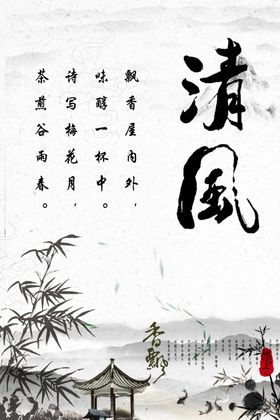 清風
飄香屋内外，
味醇一杯中。
诗写梅花月，
茶煎谷雨春。
香飄